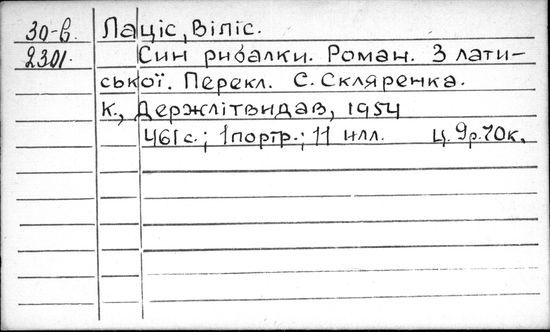 30-в. Лаціс, Віліс.
2301. Син рибалки. Роман. З лати-
ської. Перекл. С. Скляренка.
К., Держлітвидав, 1954
461 с.; 1 портр.; 11 илл. Ц. 9р.70к.